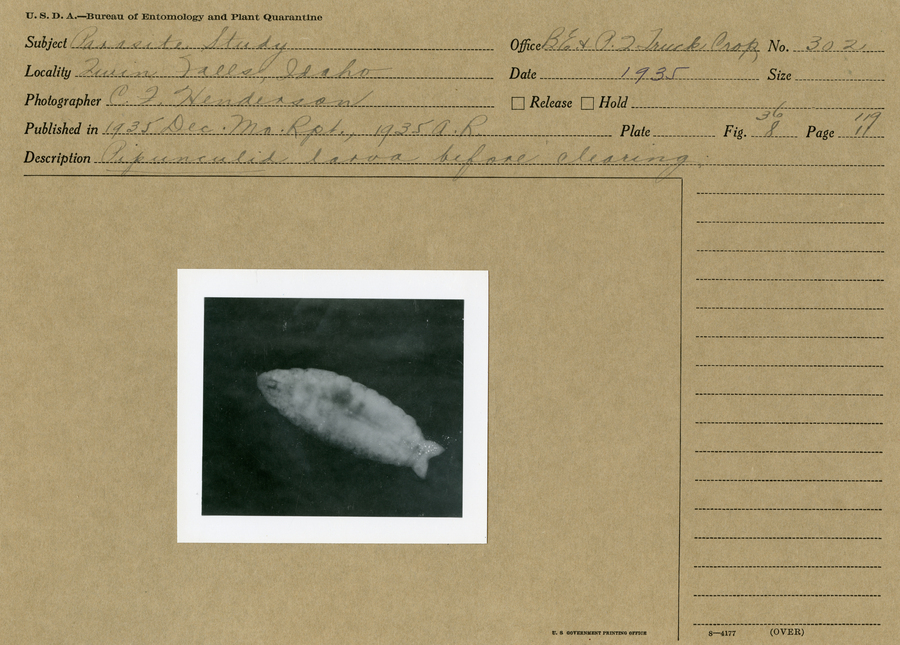 U. S. D. A.—Bureau of Entomology and Plant Quarantine
Subject Parasite Study Office B.E. & P.Q. Truck Crop No. 302
Locality Twin Falls, Idaho Date 1935 Size
Photographer C. F. Henderson Release Hold
Published in 1935 Dec. Mo. Rpt., 1935 A. R. Plate Fig. 36 8 Page 119 11
Description Pipunculid larva before clearing.
U. S GOVERNMENT PRINTING OFFICE 8—4177 (OVER)